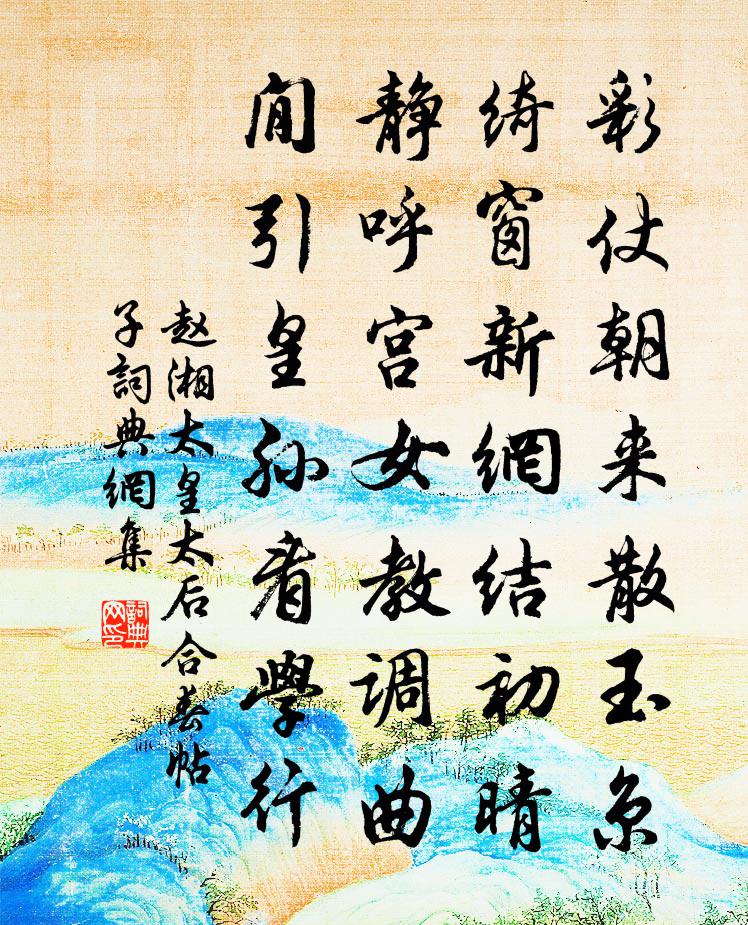 彩仗朝来散玉京
绮窗新網结初晴
静呼宫女教调曲
閒引皇孙看學行
赵湘太皇太后合春帖
子詞典網集
詞典
网印